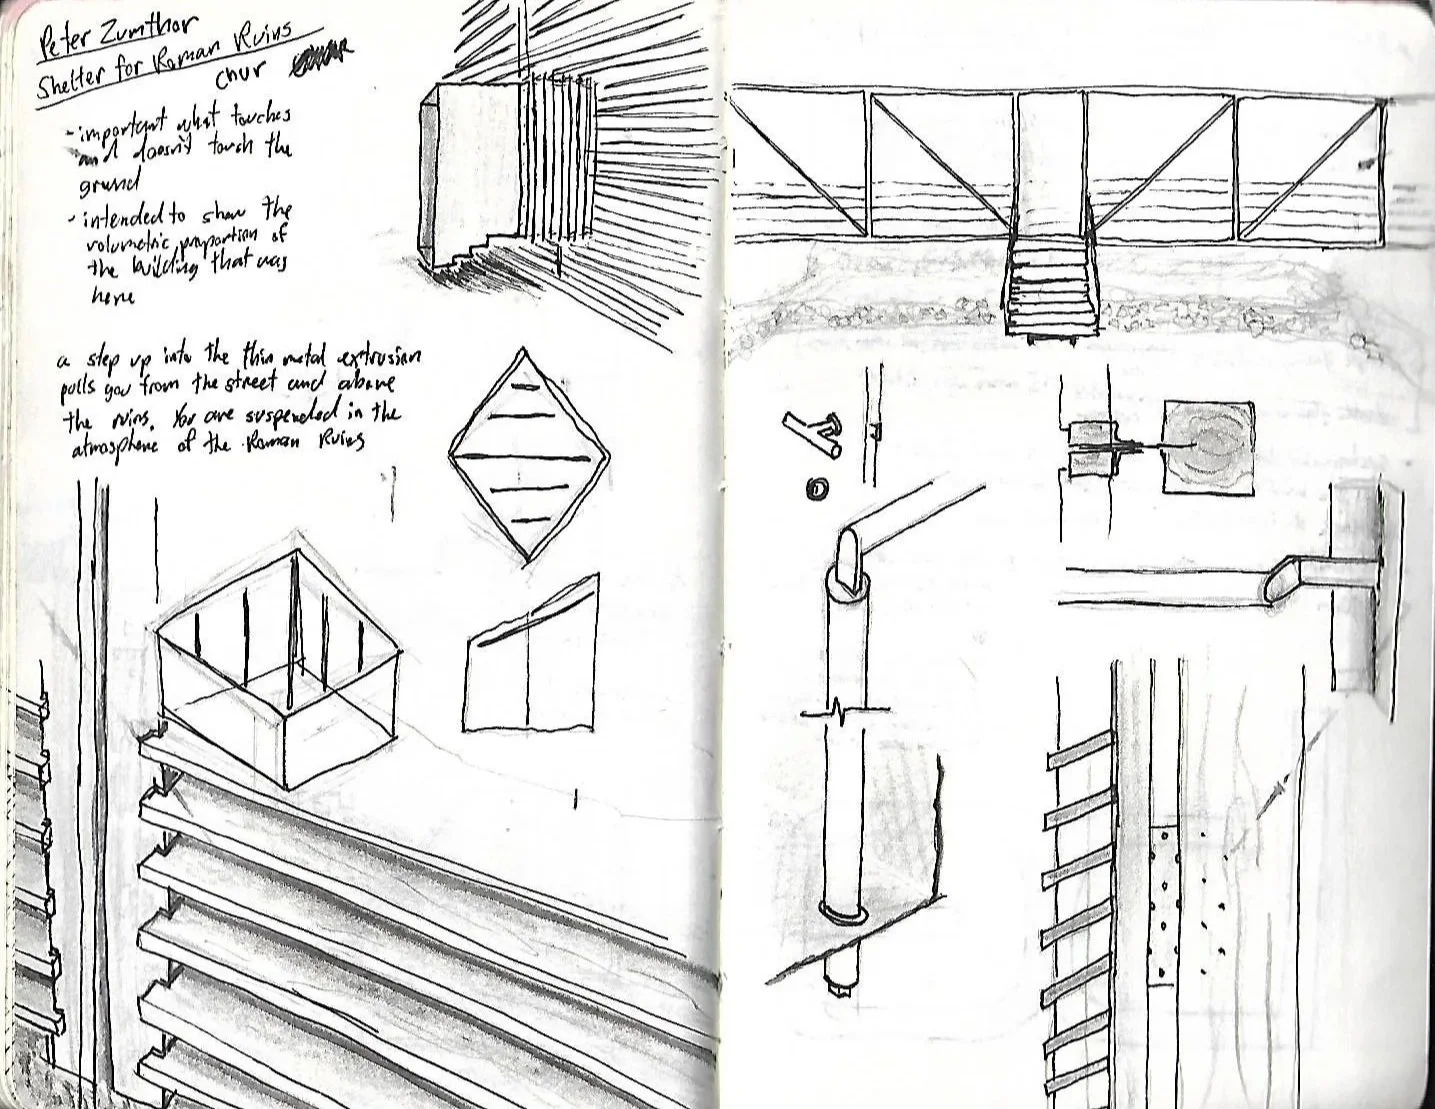 Peter Zumthor
Shelter for Roman Ruins
Chur
- important what touches
and doesn't touch the
ground
- intended to show the
volumetric proportion of
the building that was
here
a step up into the thin metal extrusion
pulls you from the street and above
the ruins. You are suspended in the
atmosphere of the Roman Ruins